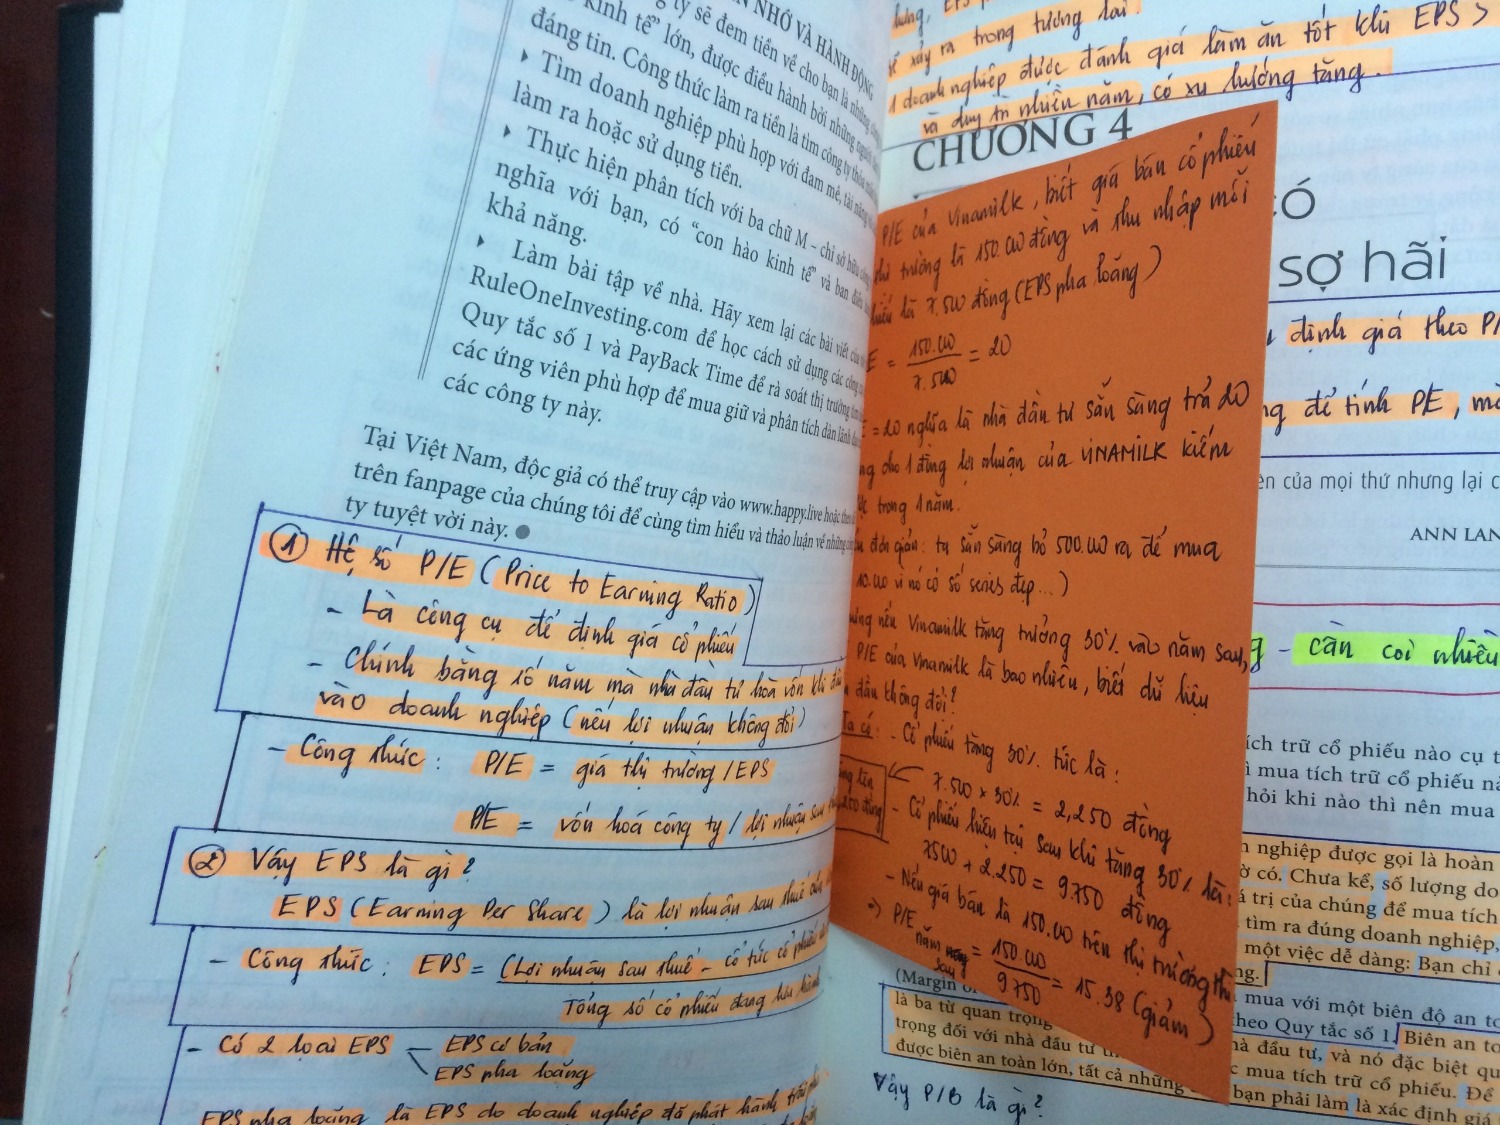 NHỚ VÀ HÀNH ĐỘNG
ty sẽ đem tiền về cho bạn là những
kinh tế” lớn, được điều hành bởi những người
đáng tin. Công thức làm ra tiền là tìm công ty thỏa mãn
▸ Tìm doanh nghiệp phù hợp với đam mê, tài năng
làm ra hoặc sử dụng tiền.
▸ Thực hiện phân tích với ba chữ M – chỉ sở hữu
nghĩa với bạn, có “con hào kinh tế” và ban điều
khả năng.
▸ Làm bài tập về nhà. Hãy xem lại các bài viết của
RuleOneInvesting.com để học cách sử dụng các công
Quy tắc số 1 và PayBack Time để rà soát thị trường tìm
các ứng viên phù hợp để mua giữ và phân tích dàn lãnh đạo
các công ty này.
Tại Việt Nam, độc giả có thể truy cập vào www.happy.live hoặc theo
trên fanpage của chúng tôi để cùng tìm hiểu và thảo luận về những
ty tuyệt vời này.
① Hệ số P/E (Price to Earning Ratio)
- Là công cụ để định giá cổ phiếu
- Chính bằng số năm mà nhà đầu tư hòa vốn khi đầu
vào doanh nghiệp (nếu lợi nhuận không đổi)
- Công thức : P/E = giá thị trường / EPS
P/E = vốn hoá công ty / lợi nhuận sau
② Vậy EPS là gì?
EPS (Earning Per Share) là lợi nhuận sau thuế
- Công thức : EPS = (Lợi nhuận sau thuế - cổ tức cổ phiếu
Tổng số cổ phiếu đang lưu hành
- Có 2 loại EPS
EPS cơ bản
EPS pha loãng
EPS pha loãng là EPS do doanh nghiệp đã phát hành
xảy ra trong tương lai.
1 doanh nghiệp được đánh giá làm ăn tốt khi EPS >
và duy trì nhiều năm, có xu hướng tăng.
CHƯƠNG 4
có
sợ hãi
định giá theo P/
để tính P/E,
của mọi thứ nhưng lại
ANN LAN
- cần coi nhiều
P/E của Vinamilk, biết giá bán cổ phiếu
trường là 150.000 đồng và thu nhập mỗi
là 7.500 đồng (EPS pha loãng)
= 150.000 / 7.500 = 20
= 20 nghĩa là nhà đầu tư sẵn sàng trả 20
cho 1 đồng lợi nhuận của VINAMILK kiếm
trong 1 năm.
đơn giản : ta sẵn sàng bỏ 500.000 ra để mua
10.000 vì nó có số series đẹp...)
nếu Vinamilk tăng trưởng 30% vào năm sau,
P/E của Vinamilk là bao nhiêu, biết dữ liệu
đầu không đổi?
Ta có : - Cổ phiếu tăng 30% tức là :
7.500 x 30% = 2,250 đồng
- Cổ phiếu hiện tại sau khi tăng 30% là :
7500 + 2.250 = 9.750 đồng
- Nếu giá bán là 150.000 trên thị trường thì
=> P/E năm sau = 150.000 / 9.750 = 15.38 (giảm)
tích trữ cổ phiếu nào cụ
mua tích trữ cổ phiếu
hỏi khi nào thì nên mua
nghiệp được gọi là hoàn
có. Chưa kể, số lượng
trị của chúng để mua tích
tìm ra đúng doanh nghiệp,
một việc dễ dàng: Bạn chỉ
(Margin of
mua với một biên độ an
là ba từ quan trọng
theo Quy tắc số 1. Biên an
trọng đối với nhà đầu tư
nhà đầu tư, và nó đặc biệt
mua tích trữ cổ phiếu. Để
được biên an toàn lớn, tất cả những
bạn phải làm là xác định giá
Vậy P/B là gì?